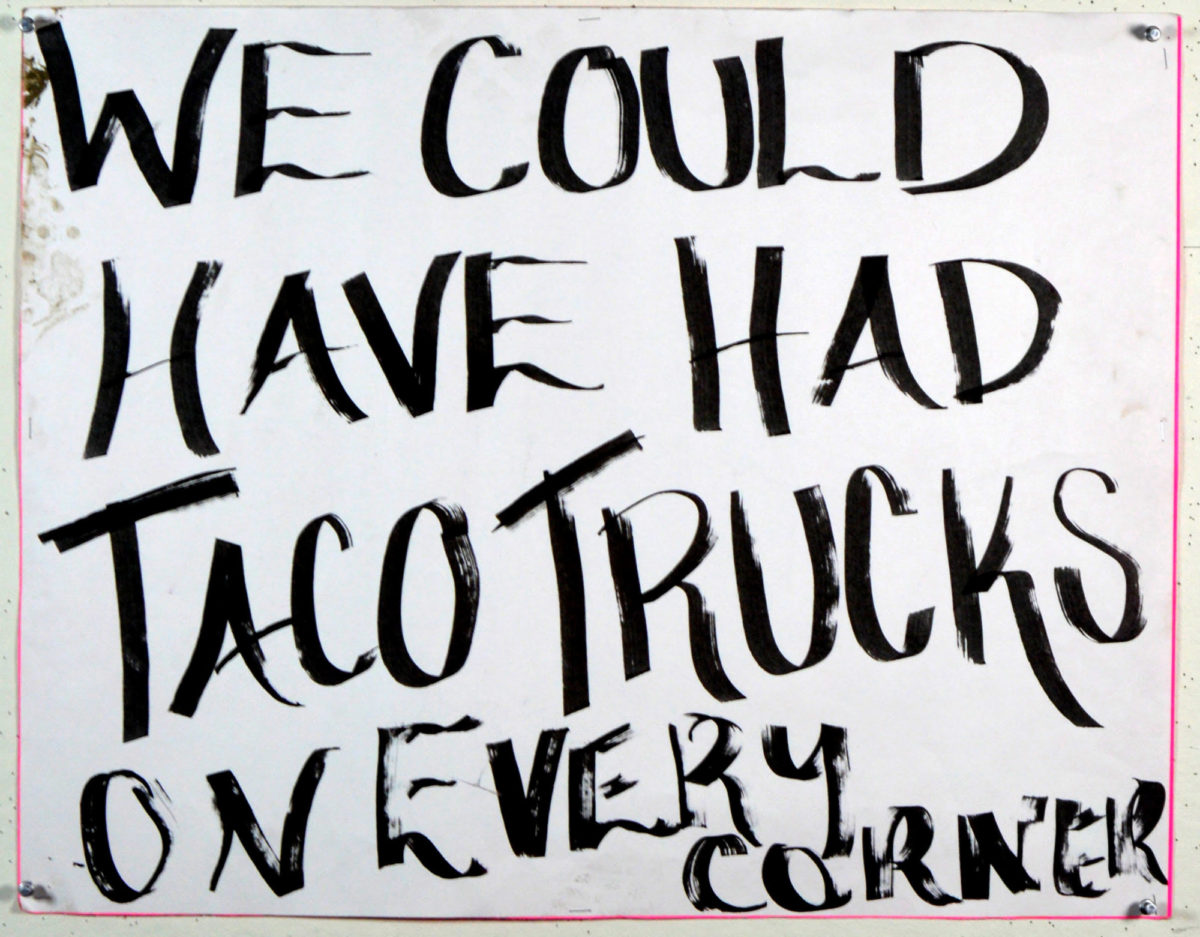 WE COULD
HAVE HAD
TACO TRUCKS
ON EVERY
CORNER